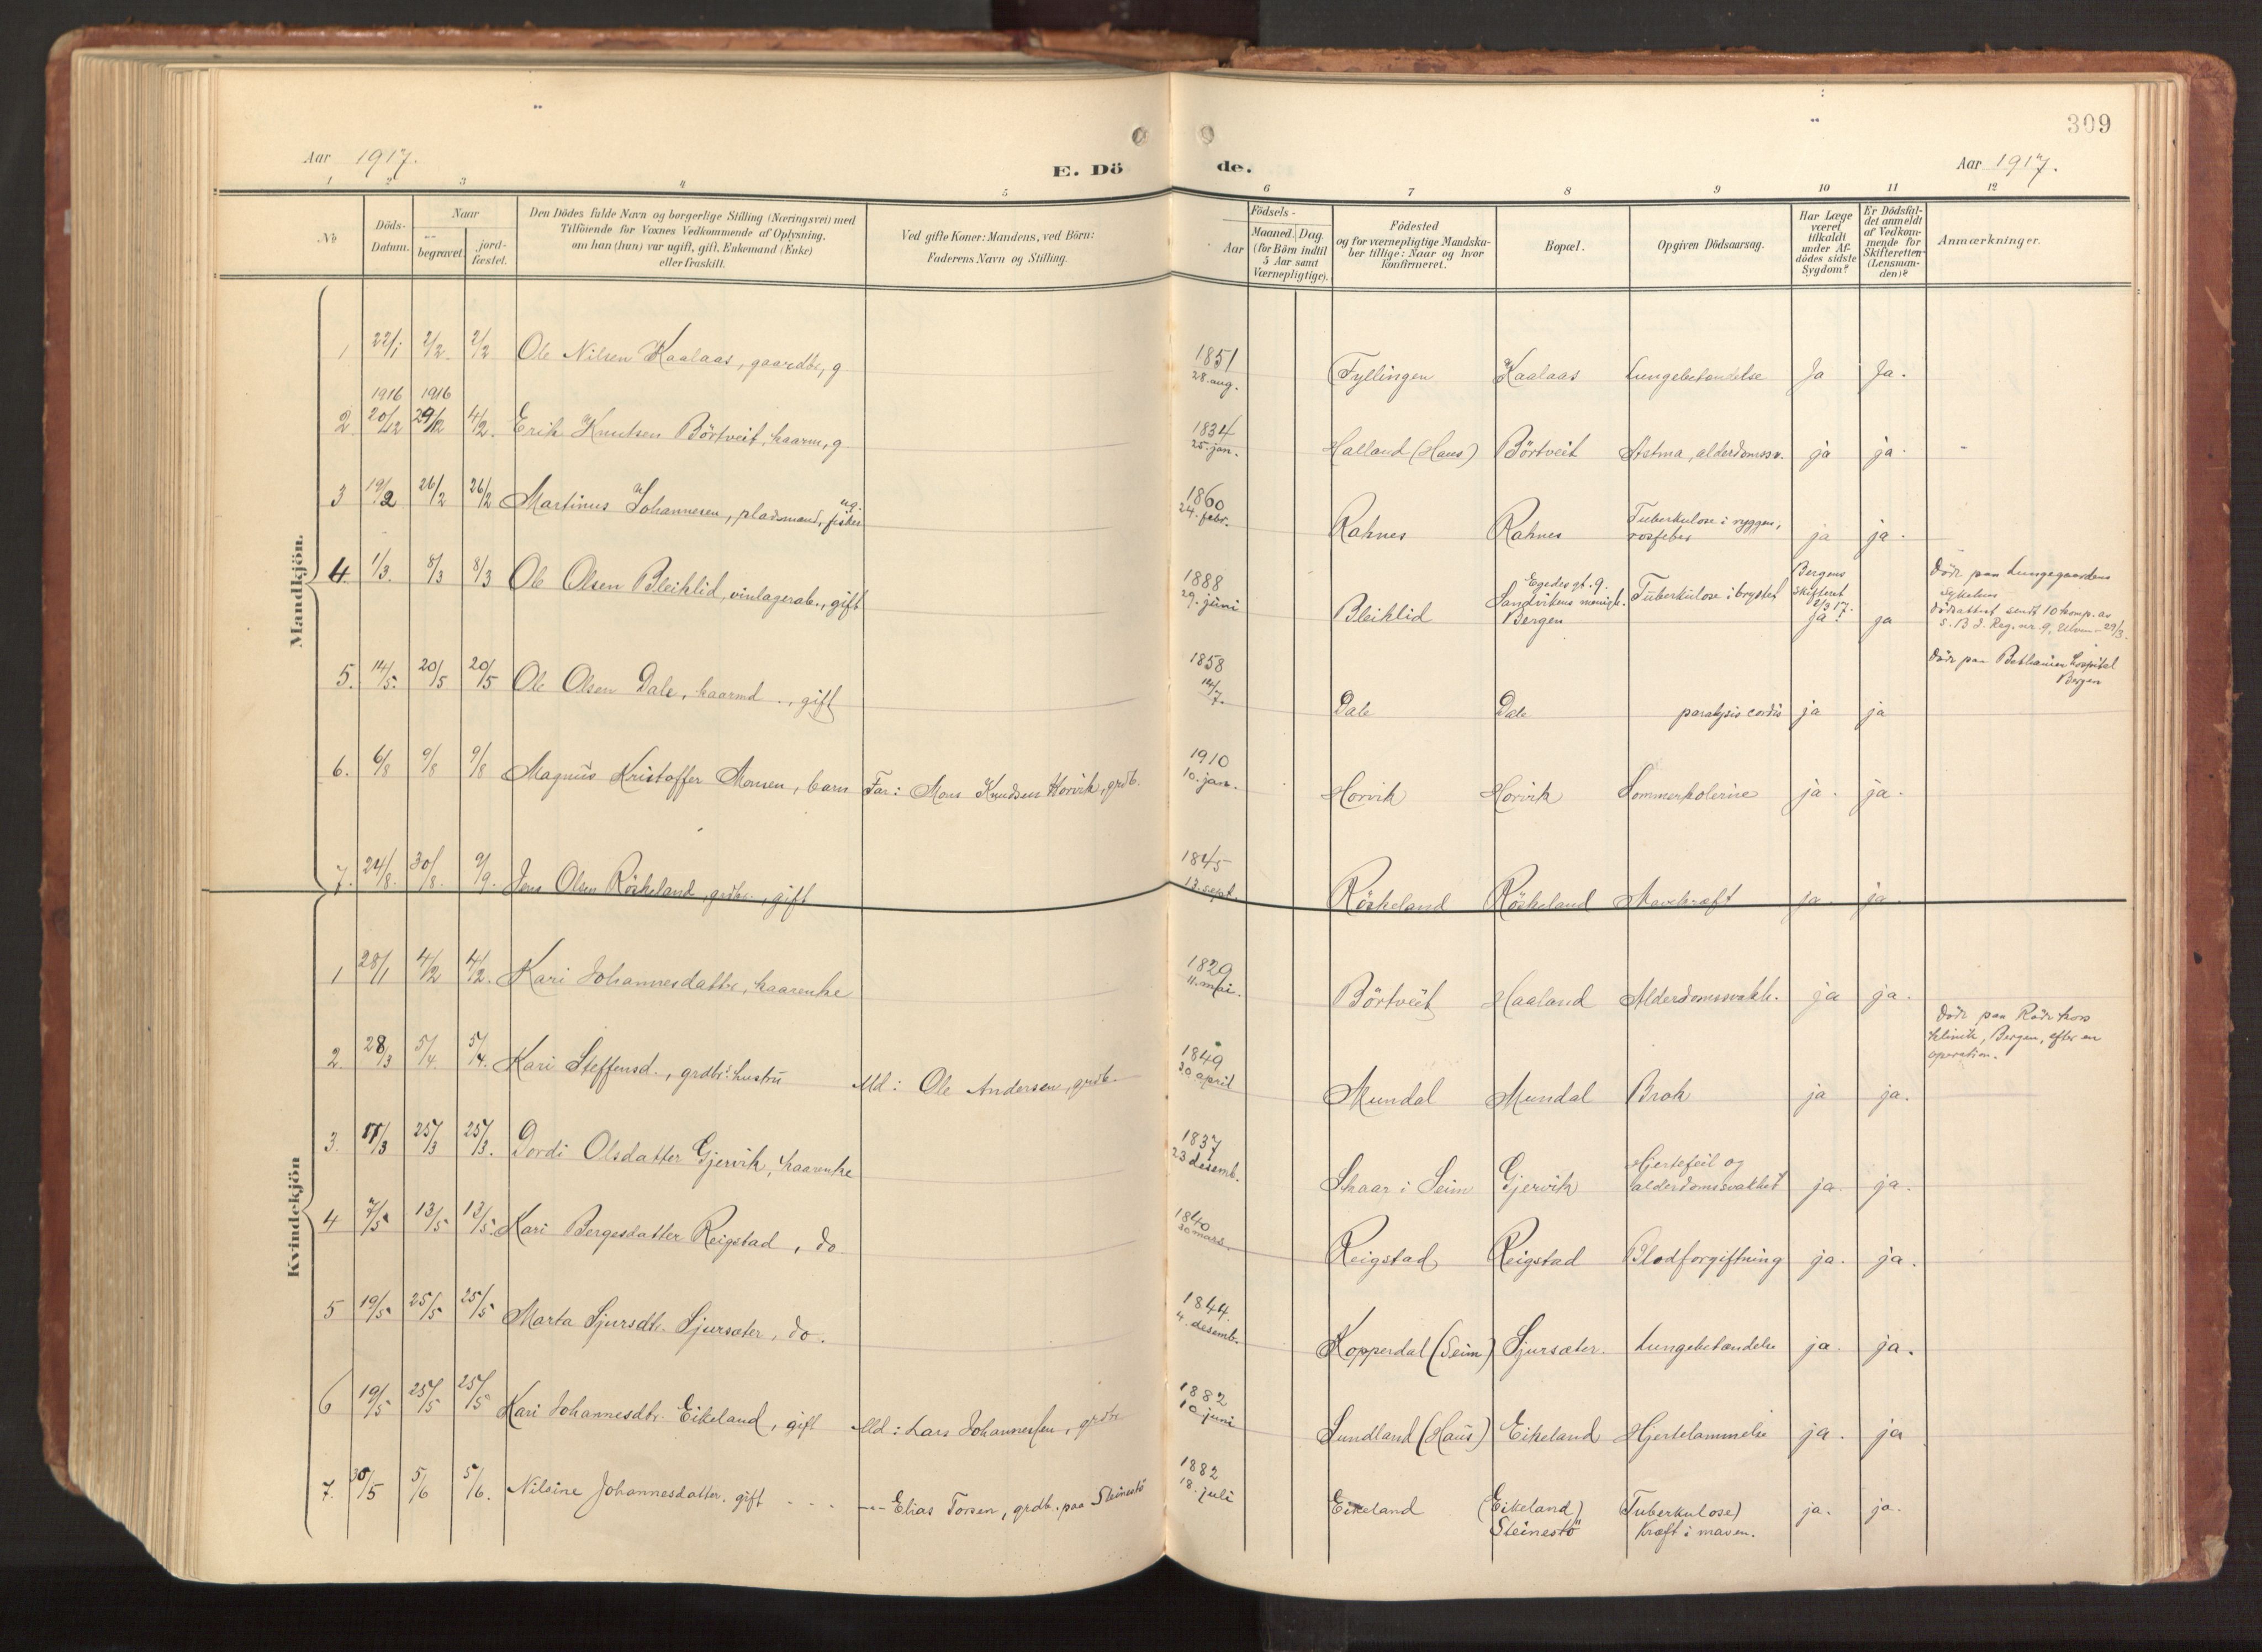 309
Aar 1917.
E. Dö de.
Aar 1917.
1 2 3 4 5 6 7 8 9 10 11 12
No
Döds-Datum.
Naar
begravet.
jord-fæstet.
Den Dödes fulde Navn og borgerlige Stilling (Næringsvei) med
Tilföiende for Voxnes Vedkommende af Oplysning,
om han (hun) var ugift, gift, Enkemand (Enke)
eller fraskilt.
Ved gifte Koner: Mandens, ved Börn:
Faderens Navn og Stilling.
Födsels-
Aar
Maaned. Dag.
(for Börn indtil
5 Aar samt
Værnepligtige).
Födested
og for værnepligtige Mandska-
ber tillige: Naar og hvor
konfirmeret.
Bopæl.
Opgiven Dödsaarsag.
Har Læge
været
tilkaldt
under Af-
dödes sidste
Sygdom?
Er Dödsfal-
det anmeldt
af Vedkom-
mende for
Skifteretten
(Lensman-
den)?
Anmærkninger.
Mandkjön.
1 22/1 2/2. 2/2 Ole Nilsen Kaalaas, gaardbr, g 1851 28. aug. Fyllingen Kaalaas Lungebetændelse Ja Ja.
1916 1916
2. 20/12 29/12 4/2. Erik Knutsen Börtveit, kaarm, g 1834 25. jan. Halland (Haus) Börtveit Astma, alderdomssv. ja ja.
3 19/2 26/2 26/2 Martinus Johannesen, pladsmand, fisker ug. 1860 24. febr. Rahnes Rahnes Tuberkulose i ryggen, rosfeber ja ja.
4. 1/3. 8/3 8/3 Ole Olsen Bleiklid, vinlagerarb., gift 1888 29. juni Bleiklid Egedes gt. 9. Sandvikens menigh. Bergen Tuberkulose i brystet Bergens skifteret 2/3 17. ja? ja Döde paa Lungegaardens sykehus
dödsattest sendt 10 komp. av
I. B. Reg. nr. 9, Ulven 29/3.
5. 14/5. 20/5 20/5 Ole Olsen Dale, kaarmd., gift 1858 14/7. Dale Dale paralysis cordis ja ja Döde paa Bethanien hospital Bergen
6. 6/8 9/8 9/8 Magnus Kristoffer Monsen, barn Far: Mons Knudsen Horvik, grdb. 1910 10. jan. Horvik Horvik Sommerkolerine ja. ja.
7. 24/8. 30/8. 9/9. Jens Olsen Röskeland, grdbr., gift 1845 13. sept. Röskeland Röskeland Mavekræft ja. ja.
Kvindekjön
1 28/1 4/2 4/2. Kari Johannesdatter, kaarenke 1829 11. mai. Börtveit Haaland Alderdomssvakh. ja ja.
2. 28/3 5/4. 5/4. Kari Steffensd., grdbr. hustru Md: Ole Andersen, grdb. 1849 30 april Mundal Mundal Brok ja ja. Döde paa Röde kors klinik, Bergen, efter en operation.
3. 17/3 25/3 25/3. Dordi Olsdatter Gjervik, kaarenke 1837 23 desemb. Skaar i Seim Gjervik Hjertefeil og alderdomssvakhet ja. ja.
4 7/5 13/5 13/5. Kari Bergesdatter Reigstad, do. 1840 30 mars. Reigstad Reigstad Blodforgiftning ja. ja.
5 19/5 25/5 25/5 Marta Sjursdtr. Sjursæter, do. 1844. 4. desemb. Kopperdal (Seim) Sjursæter. Lungebetændelse ja. ja.
6 19/5 25/5 25/5 Kari Johannesdtr. Eikeland, gift Md: Lars Johannessen, grdbr 1882 10. juni Sundland (Haus) Eikeland Hjertelammelse ja. ja
7. 30/5 5/6 5/6. Nilsine Johannesdatter, gift - - - -- Elias Torsen, grdb. paa Steinestö 1882 18. juli Eikeland (Eikeland) Steinestö (Tuberkulose) Kræft i maven. ja. ja.